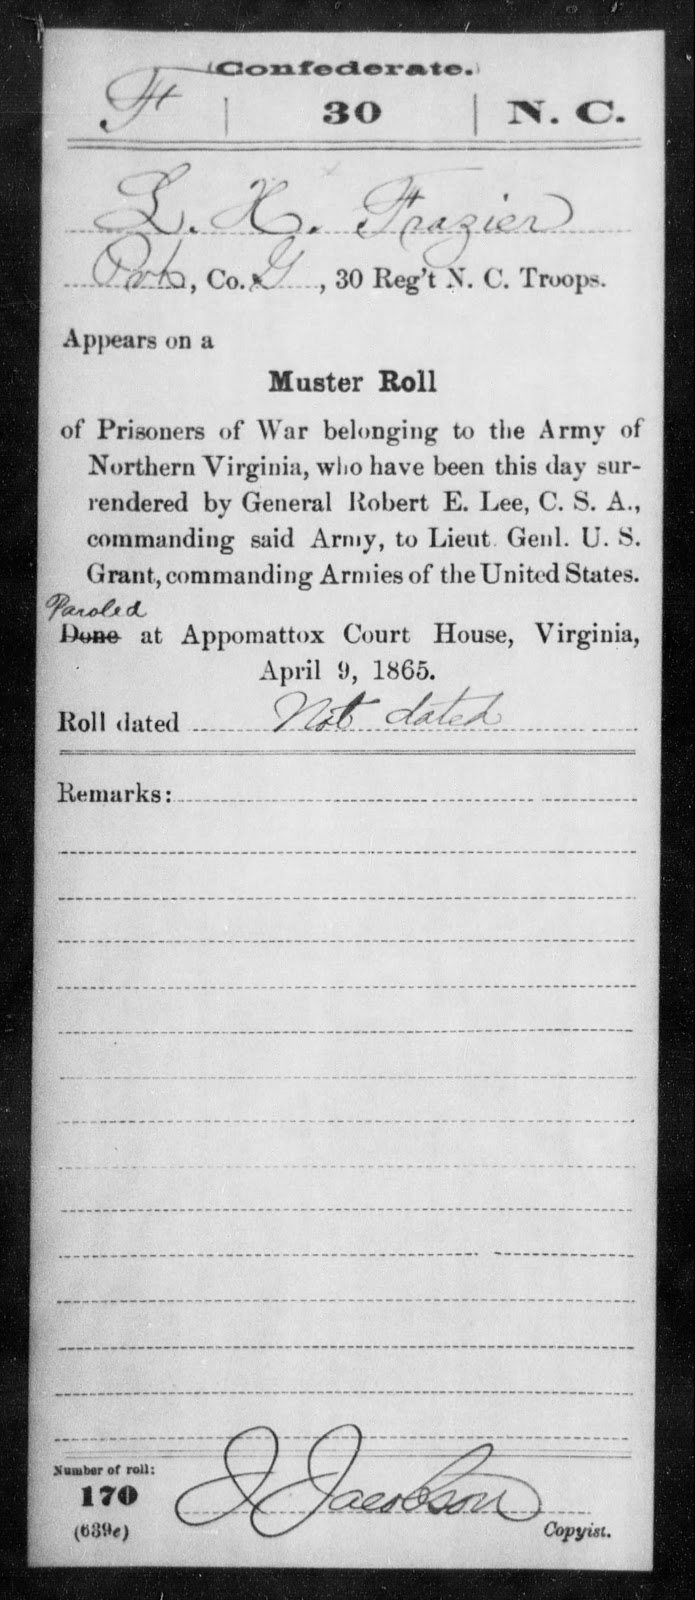 (Confederate.)
F | 30 | N. C.
L. H. Frazier
Pvt, Co. G, 30 Reg't N. C. Troops.
Appears on a
Muster Roll
of Prisoners of War belonging to the Army of
Northern Virginia, who have been this day sur-
rendered by General Robert E. Lee, C. S. A.,
commanding said Army, to Lieut. Genl. U. S.
Grant, commanding Armies of the United States.
Paroled
Done at Appomattox Court House, Virginia,
April 9, 1865.
Roll dated Not dated
Remarks:
Number of roll:
170
J Jacobson
(639e)
Copyist.